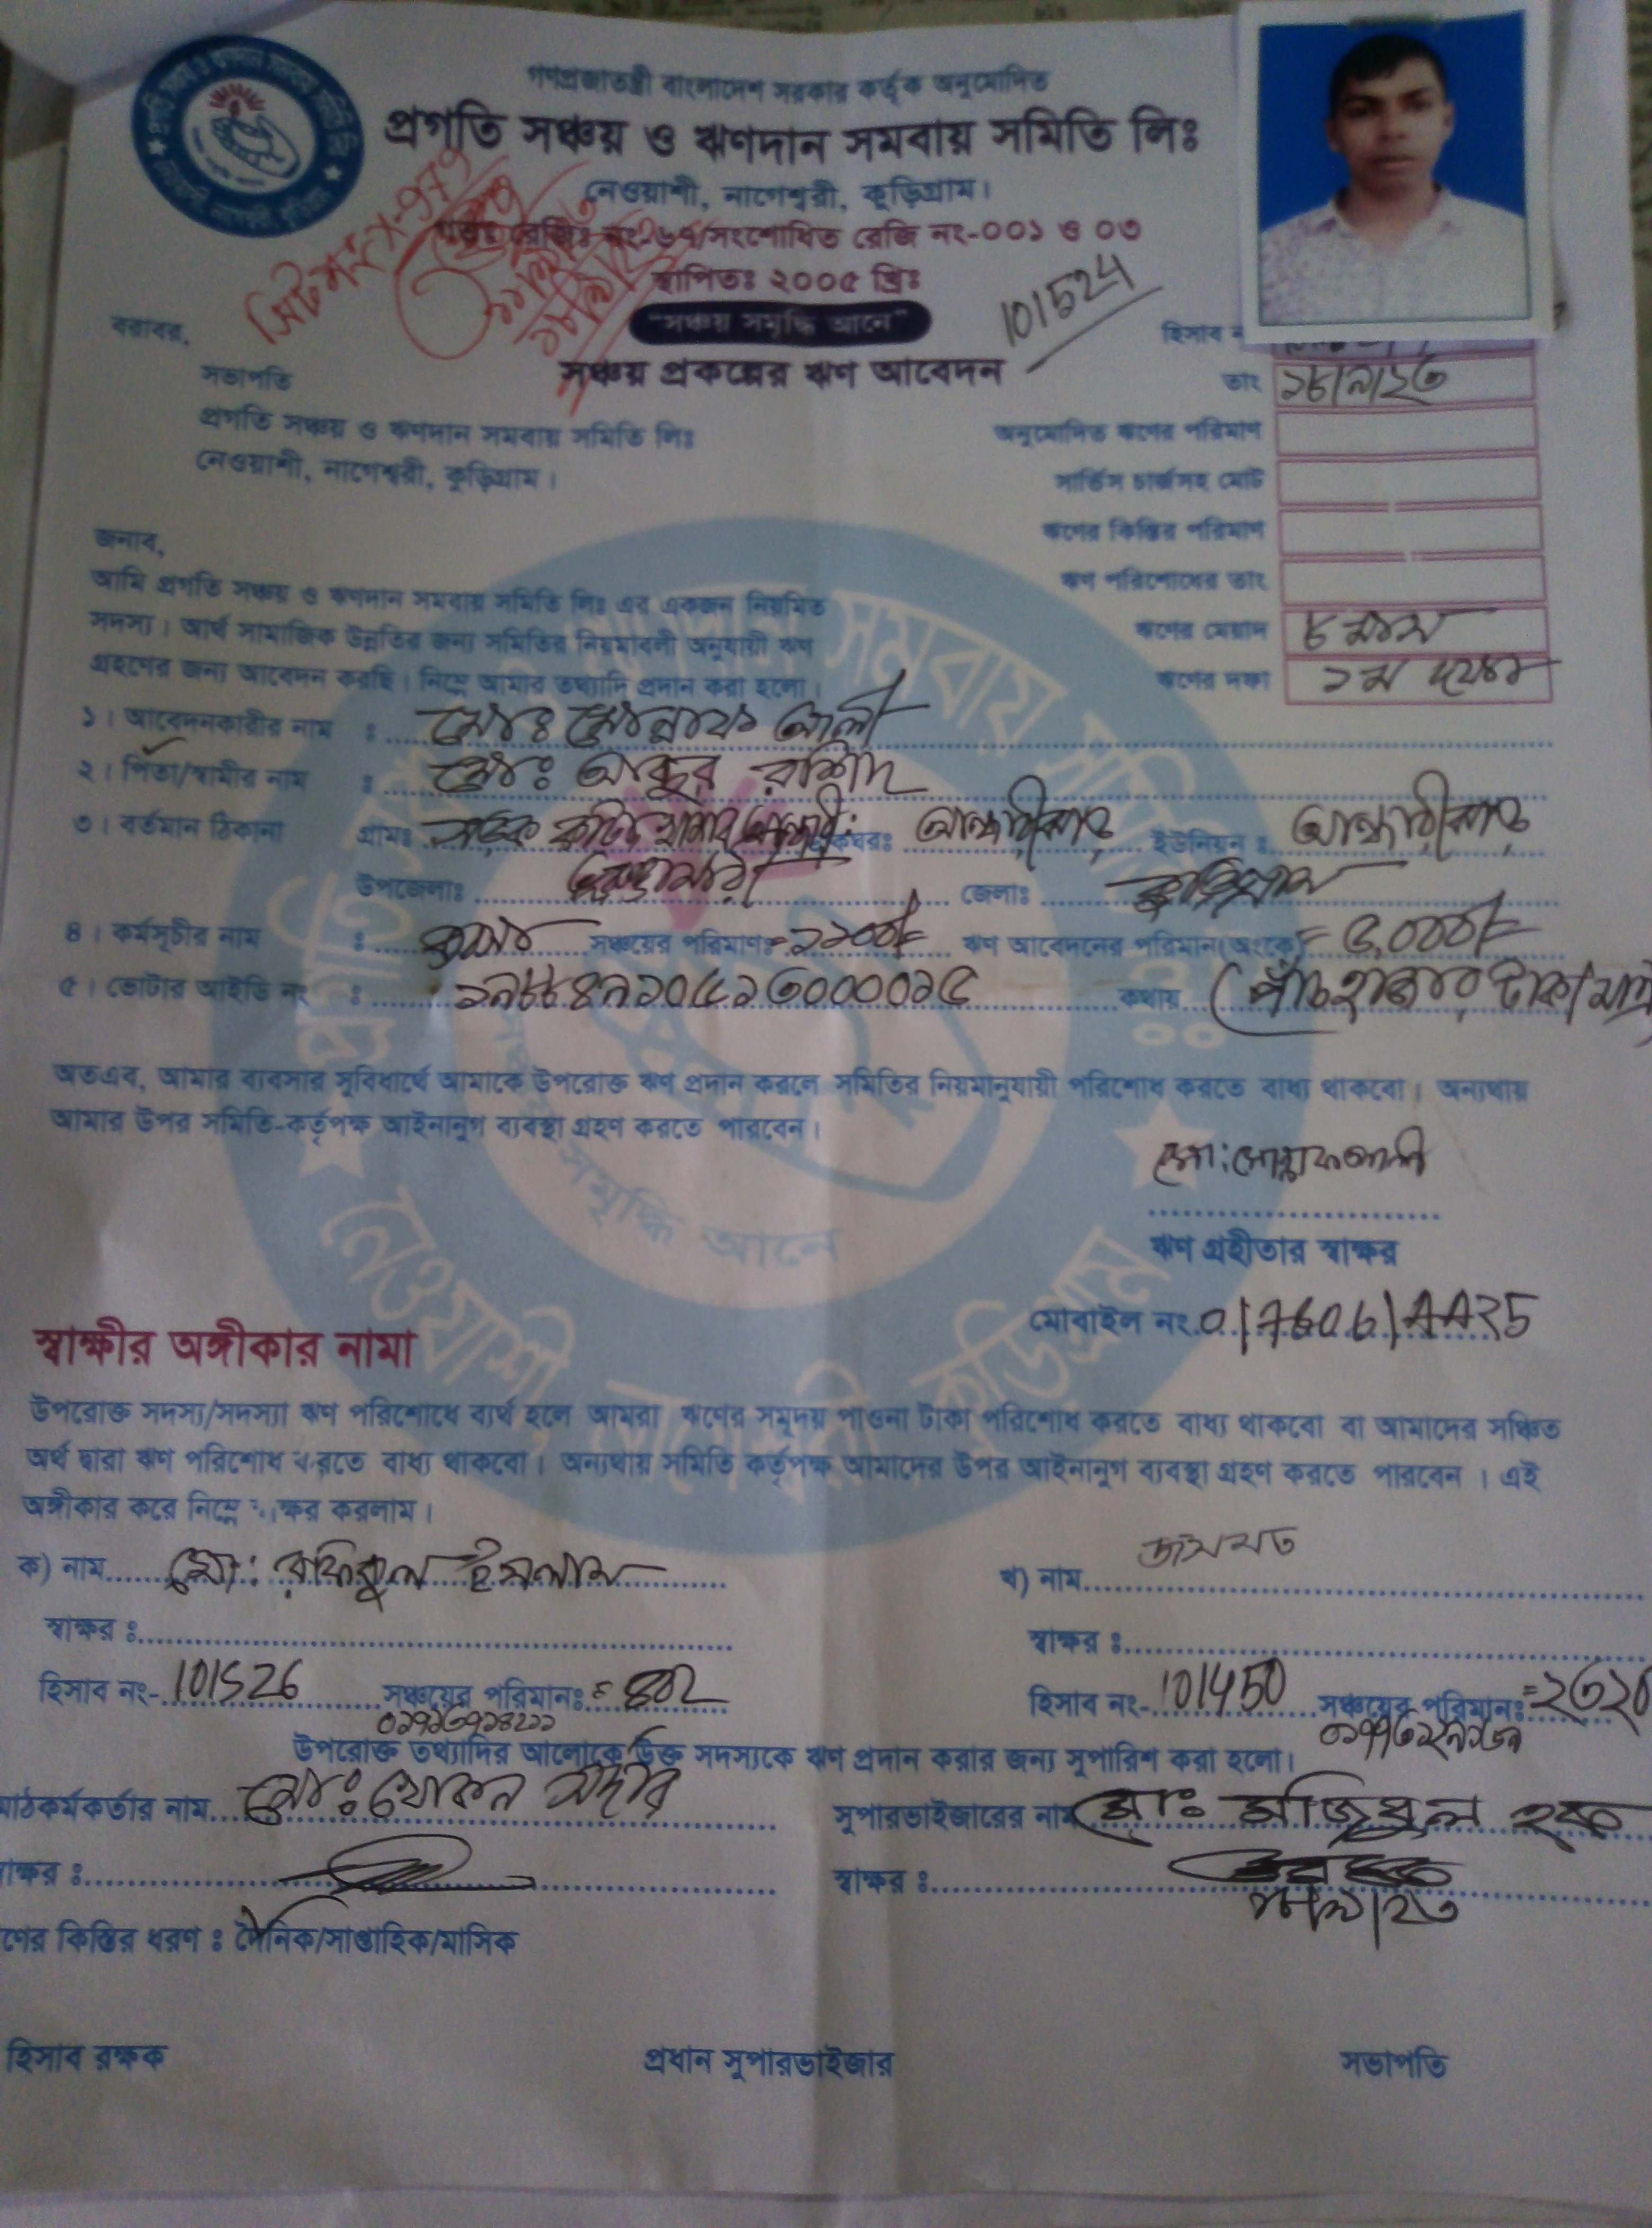 গণপ্রজাতন্ত্রী বাংলাদেশ সরকার কর্তৃক অনুমোদিত
প্রগতি সঞ্চয় ও ঋণদান সমবায় সমিতি লিঃ
নেওয়াশী, নাগেশ্বরী, কুড়িগ্রাম।
রেজিঃ নং-৬৭/সংশোধিত রেজি নং-০০১ ও ০৩
স্থাপিতঃ ২০০৫ খ্রিঃ
"সঞ্চয় সমৃদ্ধি আনে"
101524
সঞ্চয় প্রকল্পের ঋণ আবেদন
বরাবর,
সভাপতি
প্রগতি সঞ্চয় ও ঋণদান সমবায় সমিতি লিঃ
নেওয়াশী, নাগেশ্বরী, কুড়িগ্রাম।
হিসাব
তাং ১৮/৯/২৩
অনুমোদিত ঋণের পরিমাণ
সার্ভিস চার্জসহ মোট
ঋণের কিস্তির পরিমাণ
ঋণ পরিশোধের তাং
ঋণের মেয়াদ ৮ মাস
ঋণের দফা ১ম দফা
জনাব,
আমি প্রগতি সঞ্চয় ও ঋণদান সমবায় সমিতি লিঃ এর একজন নিয়মিত
সদস্য। আর্থ সামাজিক উন্নতির জন্য সমিতির নিয়মাবলী অনুযায়ী ঋণ
গ্রহণের জন্য আবেদন করছি। নিম্নে আমার তথ্যাদি প্রদান করা হলো।
১। আবেদনকারীর নাম : মোঃ মোন্নাফ আলী
২। পিতা/স্বামীর নাম : মোঃ আব্দুর রশিদ
৩। বর্তমান ঠিকানা গ্রামঃ সড়ক কাটা ডাকঘরঃ আন্ধারীঝাড় ইউনিয়ন : আন্ধারীঝাড়
উপজেলাঃ ভুরুঙ্গামারী জেলাঃ কুড়িগ্রাম
৪। কর্মসূচীর নাম : সঞ্চয়ের পরিমাণঃ ঋণ আবেদনের পরিমান(অংকে) = ৫,০০০/=
৫। ভোটার আইডি নং : ১৯৮৮৪৯১০৫১৩০০০০১৫ কথায় (পাঁচ হাজার টাকা মাত্র)
অতএব, আমার ব্যবসার সুবিধার্থে আমাকে উপরোক্ত ঋণ প্রদান করলে সমিতির নিয়মানুযায়ী পরিশোধ করতে বাধ্য থাকবো। অন্যথায়
আমার উপর সমিতি-কর্তৃপক্ষ আইনানুগ ব্যবস্থা গ্রহণ করতে পারবেন।
মো: মোন্নাফ আলী
ঋণ গ্রহীতার স্বাক্ষর
মোবাইল নং
স্বাক্ষীর অঙ্গীকার নামা
উপরোক্ত সদস্য/সদস্যা ঋণ পরিশোধে ব্যর্থ হলে আমরা ঋণের সমুদয় পাওনা টাকা পরিশোধ করতে বাধ্য থাকবো বা আমাদের সঞ্চিত
অর্থ দ্বারা ঋণ পরিশোধ করতে বাধ্য থাকবো। অন্যথায় সমিতি কর্তৃপক্ষ আমাদের উপর আইনানুগ ব্যবস্থা গ্রহণ করতে পারবেন। এই
অঙ্গীকার করে নিম্নে স্বাক্ষর করলাম।
ক) নাম মো: রফিকুল ইসলাম
খ) নাম
স্বাক্ষর :
স্বাক্ষর :
হিসাব নং- 101526 সঞ্চয়ের পরিমানঃ
হিসাব নং- 101450 সঞ্চয়ের পরিমানঃ =২৩২০
উপরোক্ত তথ্যাদির আলোকে উক্ত সদস্যকে ঋণ প্রদান করার জন্য সুপারিশ করা হলো।
মাঠকর্মকর্তার নাম মোঃ খোকন সর্দার
সুপারভাইজারের নাম মোঃ মজিবুল হক
স্বাক্ষর :
স্বাক্ষর :
ঋণের কিস্তির ধরণ : দৈনিক/সাপ্তাহিক/মাসিক
হিসাব রক্ষক
প্রধান সুপারভাইজার
সভাপতি